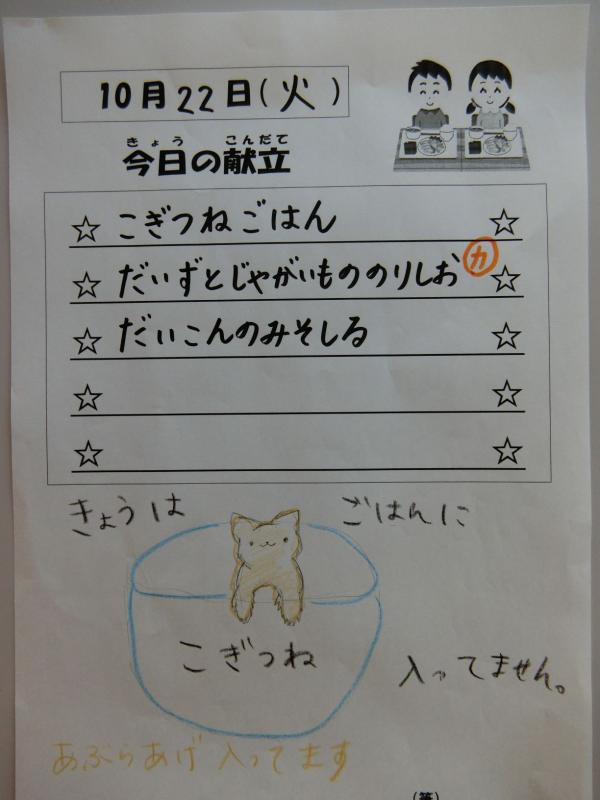 10月22日(火)
きょう こんだて
今日の献立
☆ こぎつねごはん ☆
☆ だいずとじゃがいものりしお カ ☆
☆ だいこんのみそしる ☆
☆ ☆
☆ ☆
きょうは ごはんに
こぎつね
入ってません。
あぶらあげ 入ってます